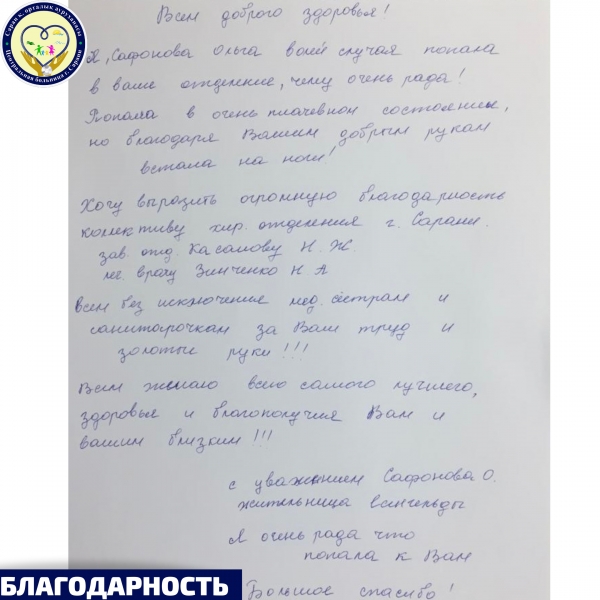 Саран қ. орталық ауруханасы
Центральная больница г. Сарани
Всем доброго здоровья!
Я, Сафонова Ольга волей случая попала
в ваше отделение, чему очень рада!
Попала в очень плачевном состоянии,
но благодаря Вашим добрым рукам
встала на ноги!
Хочу выразить огромную благодарность
коллективу хир. отделения г. Сарани.
зав. отд. Касамову Н. Ж.
леч. врачу Зинченко Н А
всем без исключения мед. сёстрам и
санитарочкам за Ваш труд и
золотые руки!!!
Всем желаю всего самого лучшего,
здоровья и благополучия Вам и
вашим близким!!!
с уважением Сафонова О.
жительница
Я очень рада что
попала к Вам
Большое спасибо!
БЛАГОДАРНОСТЬ